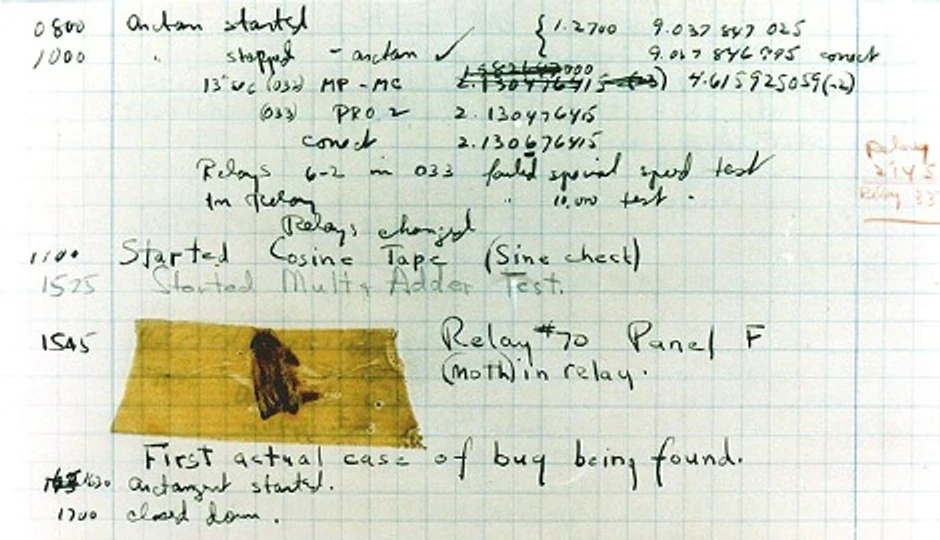 0800 arctan started { 1.2700 9.037 847 025
1000 " stopped - arctan ✓ 9.037 846 995 correct
13"uc (032) MP-MC 4.615925059(-2)
(033) PRO 2 2.130476415
correct 2.130676415
Relays 6-2 in 033 failed special speed test
In Relay " 10,000 test.
Relays changed
Relay
1100 Started Cosine Tape (Sine check)
1525 Started Mult+ Adder Test.
1545 Relay #70 Panel F
(Moth) in relay.
First actual case of bug being found.
1630 arctangent started.
1700 closed down.